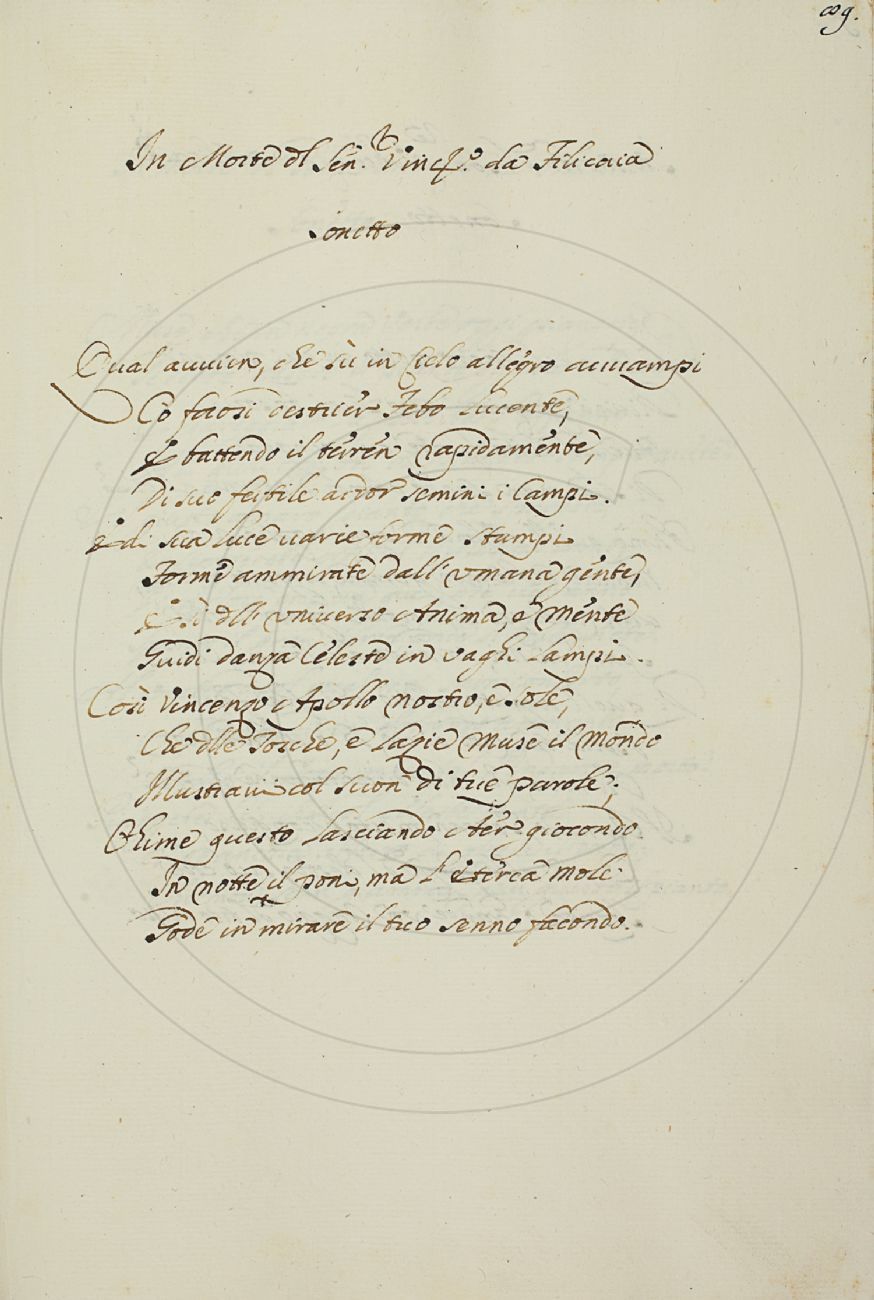 89.
In Morte dl Sen.re Vincz.o da Filicaia
Sonetto
Qual auuien, che sù in Cielo allegro auuampi
Cò faosi destrier Febo lucente,
E battendo il terren rapidamente,
Di suo fertile ardor semini i Campi.
E di sua luce uarie forme stampi
Forme ammirate dall' vmana gente,
E sì dll' vniuerso Anima, e mente
Guidi danza Celeste in vaghi Lampi.
Così Vincenzo Apollo nostro, e sole,
Che dlle Tosche, e Lazie Muse il Mondo
Illustraui col suon di tue parole;
Ohime questo Lasciando ater giocondo
In notte il poni, ma l' eterea mole
Gode in mirare il tuo senno facondo.